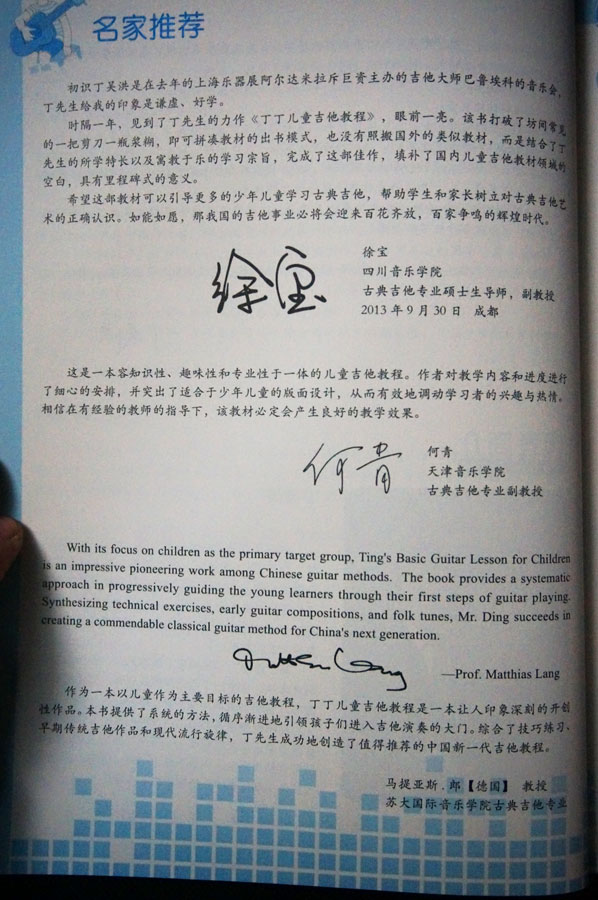 名家推荐
初识丁吴洪是在去年的上海乐器展阿尔达米拉斥巨资主办的吉他大师巴鲁埃科的音乐会，
丁先生给我的印象是谦虚、好学。
时隔一年，见到了丁先生的力作《丁丁儿童吉他教程》，眼前一亮。该书打破了坊间常见
的一把剪刀一瓶浆糊，即可拼凑教材的出书模式，也没有照搬国外的类似教材，而是结合了丁
先生的所学特长以及寓教于乐的学习宗旨，完成了这部佳作，填补了国内儿童吉他教材领域的
空白，具有里程碑式的意义。
希望这部教材可以引导更多的少年儿童学习古典吉他，帮助学生和家长树立对古典吉他艺
术的正确认识。如能如愿，那我国的吉他事业必将会迎来百花齐放，百家争鸣的辉煌时代。
徐宝
徐宝
四川音乐学院
古典吉他专业硕士生导师，副教授
2013 年 9 月 30 日 成都
这是一本容知识性、趣味性和专业性于一体的儿童吉他教程。作者对教学内容和进度进行
了细心的安排，并突出了适合于少年儿童的版面设计，从而有效地调动学习者的兴趣与热情。
相信在有经验的教师的指导下，该教材必定会产生良好的教学效果。
何青
何青
天津音乐学院
古典吉他专业副教授
With its focus on children as the primary target group, Ting's Basic Guitar Lesson for Children
is an impressive pioneering work among Chinese guitar methods. The book provides a systematic
approach in progressively guiding the young learners through their first steps of guitar playing.
Synthesizing technical exercises, early guitar compositions, and folk tunes, Mr. Ding succeeds in
creating a commendable classical guitar method for China's next generation.
Matthias Lang
—Prof. Matthias Lang
作为一本以儿童作为主要目标的吉他教程，丁丁儿童吉他教程是一本让人印象深刻的开创
性作品。本书提供了系统的方法，循序渐进地引领孩子们进入吉他演奏的大门。综合了技巧练习、
早期传统吉他作品和现代流行旋律，丁先生成功地创造了值得推荐的中国新一代吉他教程。
马提亚斯 . 郎【德国】 教授
苏大国际音乐学院古典吉他专业